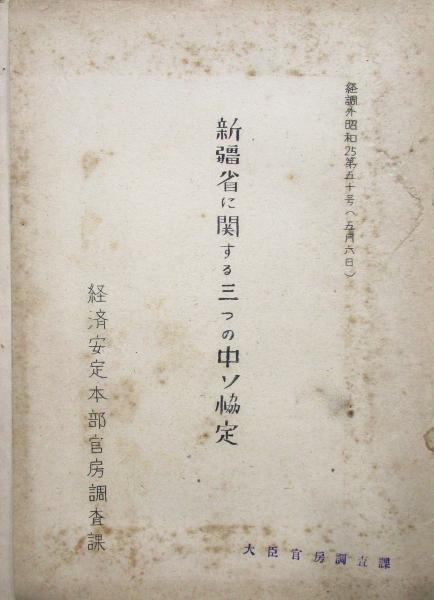 経調外昭和25第五十号（五月六日）
新疆省に関する三つの中ソ協定
経済安定本部官房調査課
大臣官房調査課